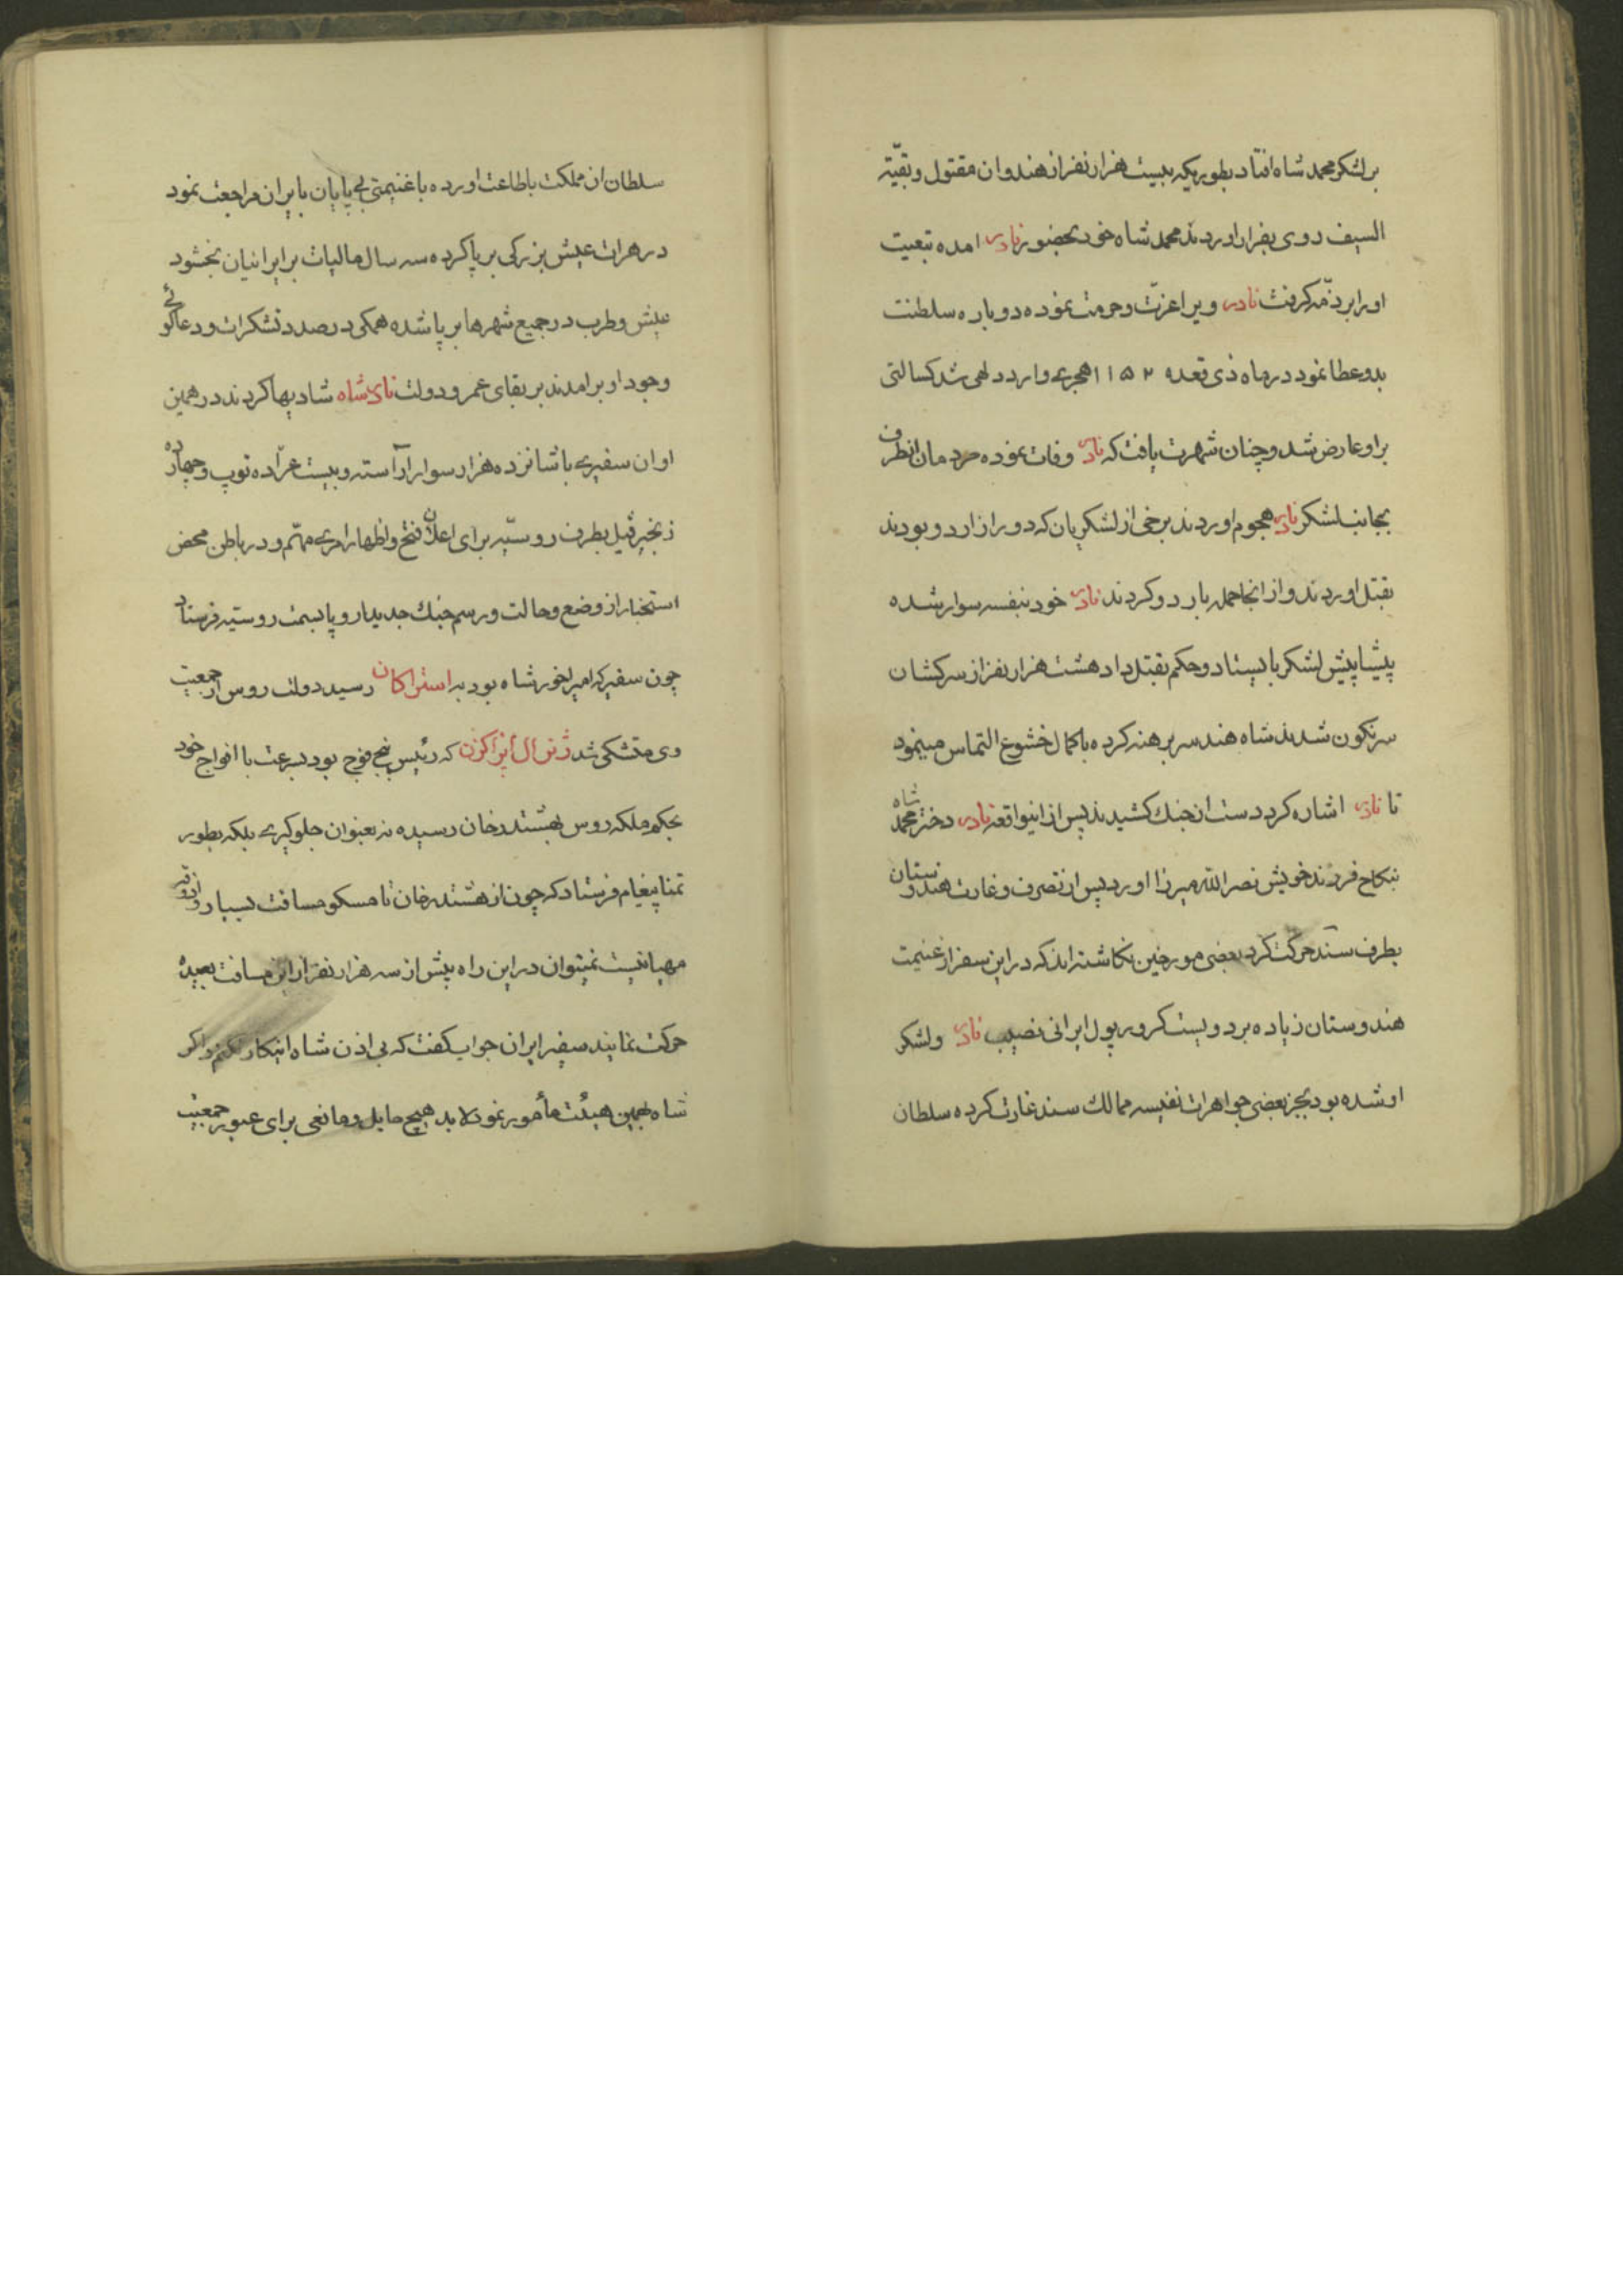 بر لشکر محمد شاه افتاد بطوریکه بیست هزار نفر از هندوان مقتول و بقیّة
السیف روی بفرار اوردند محمد شاه خود بحضور نادر امده تبعیت
او را بر ذمّه کرفت نادر ویرا عزّت و حرمت نموده دوباره سلطنت
بدو عطا نمود در ماه ذی قعده ۱۱۵۲ هجری وارد دهلی شد کسالتی
بر او عارض شد و چنان شهرت یافت که نادر وفات نموده مردمان انطرف
بجانب لشکر نادر هجوم اوردند برخی از لشکریان که دور از اردو بودند
بقتل اوردند و از انجا حمله بارد و کردند نادر خود بنفسه سوار شده
پیشاپیش لشکر بایستاد و حکم بقتل داد هشت هزار نفر از سرکشان
سرنکون شدند شاه هند سر برهنه کرده با کمال خشوع التماس مینمود
تا نادر اشاره کرد دست از جنك کشیدند پس از اینواقعه نادر دختر محمد شاه
بنکاح فرزند خویش نصرالله میرزا اورد پس از تصرف و غارت هندوستان
بطرف سند حرکت کرد بعضی مورخین نکاشته اند که در این سفر از غنیمت
هندوستان زیاده بر دویست کرور پول ایرانی نصیب نادر ولشکر
او شده بود بجز بعضی جواهرات نفیسه ممالك سند غارت کرده سلطان
سلطان ان مملکت باطاعت اورده با غنیمتی بی پایان بایران مراجعت نمود
در هرات عیش بزرکی برپا کرده سه سال مالیات بر ایرانیان بخشود
عیش و طرب در جمیع شهرها برپا شده همکی در صدد تشکرات و دعاکوئی
وجود او برامدند بر بقای عمر و دولت نادر شاه شادیها کردند در همین
اوان سفیری با شانزده هزار سوار آراسته و بیست عرّاده توپ و چهارده
زنجیر فیل بطرف روسیّه برای اعلان فتح و اظهار امری مهمّ و در باطن محض
استخبار از وضع و حالت و رسم جنك جدید اروپا بسمت روسیّه فرستاد
چون سفیر که امیراخور شاه بود به استراکان رسید دولت روس از جمعیت
وی متشکی شد ژنرال اپراکزن که رئیس پنج فوج بود بسرعت با افواج خود
بحکم ملکه روس بهشتدرخان رسیده نه بعنوان جلوکیری بلکه بطور
تمنا پیغام فرستاد که چون از هشتدرخان تا مسکو مسافت بسیار و اذوقه
مهیا نیست نمیتوان در این راه بیش از سه هزار نفر از این مسافت بعیده
حرکت نمایند سفیر ایران جواب کفت که بی اذن شاه اینکار نکنم زیراکه
شاه بهمین هیئت مأمور نموده لابد هیچ حایل و مانعی برای عبور جمعیت